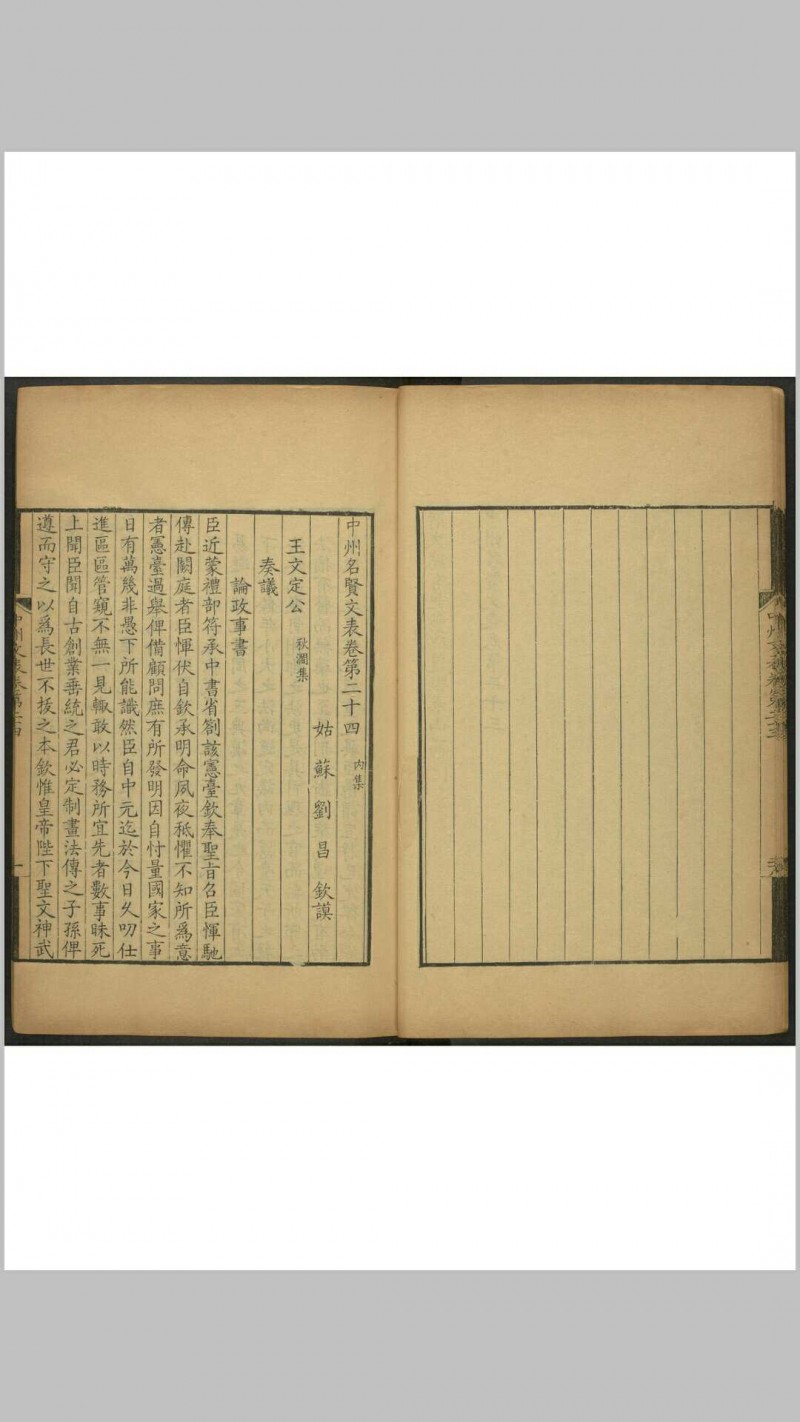 中州名賢文表卷第二十四 內集
姑蘇劉昌欽謨
王文定公 秋澗集
奏議
論政事書
臣近蒙禮部符承中書省劄該憲臺欽奉聖旨名臣惲馳
傳赴闕庭者臣惲伏自欽承明命夙夜秪懼不知所為意
者憲臺過舉俾備顧問庶有所發明因自忖量國家之事
日有萬幾非愚下所能識然臣自中元迄於今日久叨仕
進區區管窺不無一見輙敢以時務所宜先者數事昧死
上聞臣聞自古創業垂統之君必定制畫法傳之子孫俾
遵而守之以為長世不拔之本欽惟皇帝陛下聖文神武
中州文表卷第二十四
一